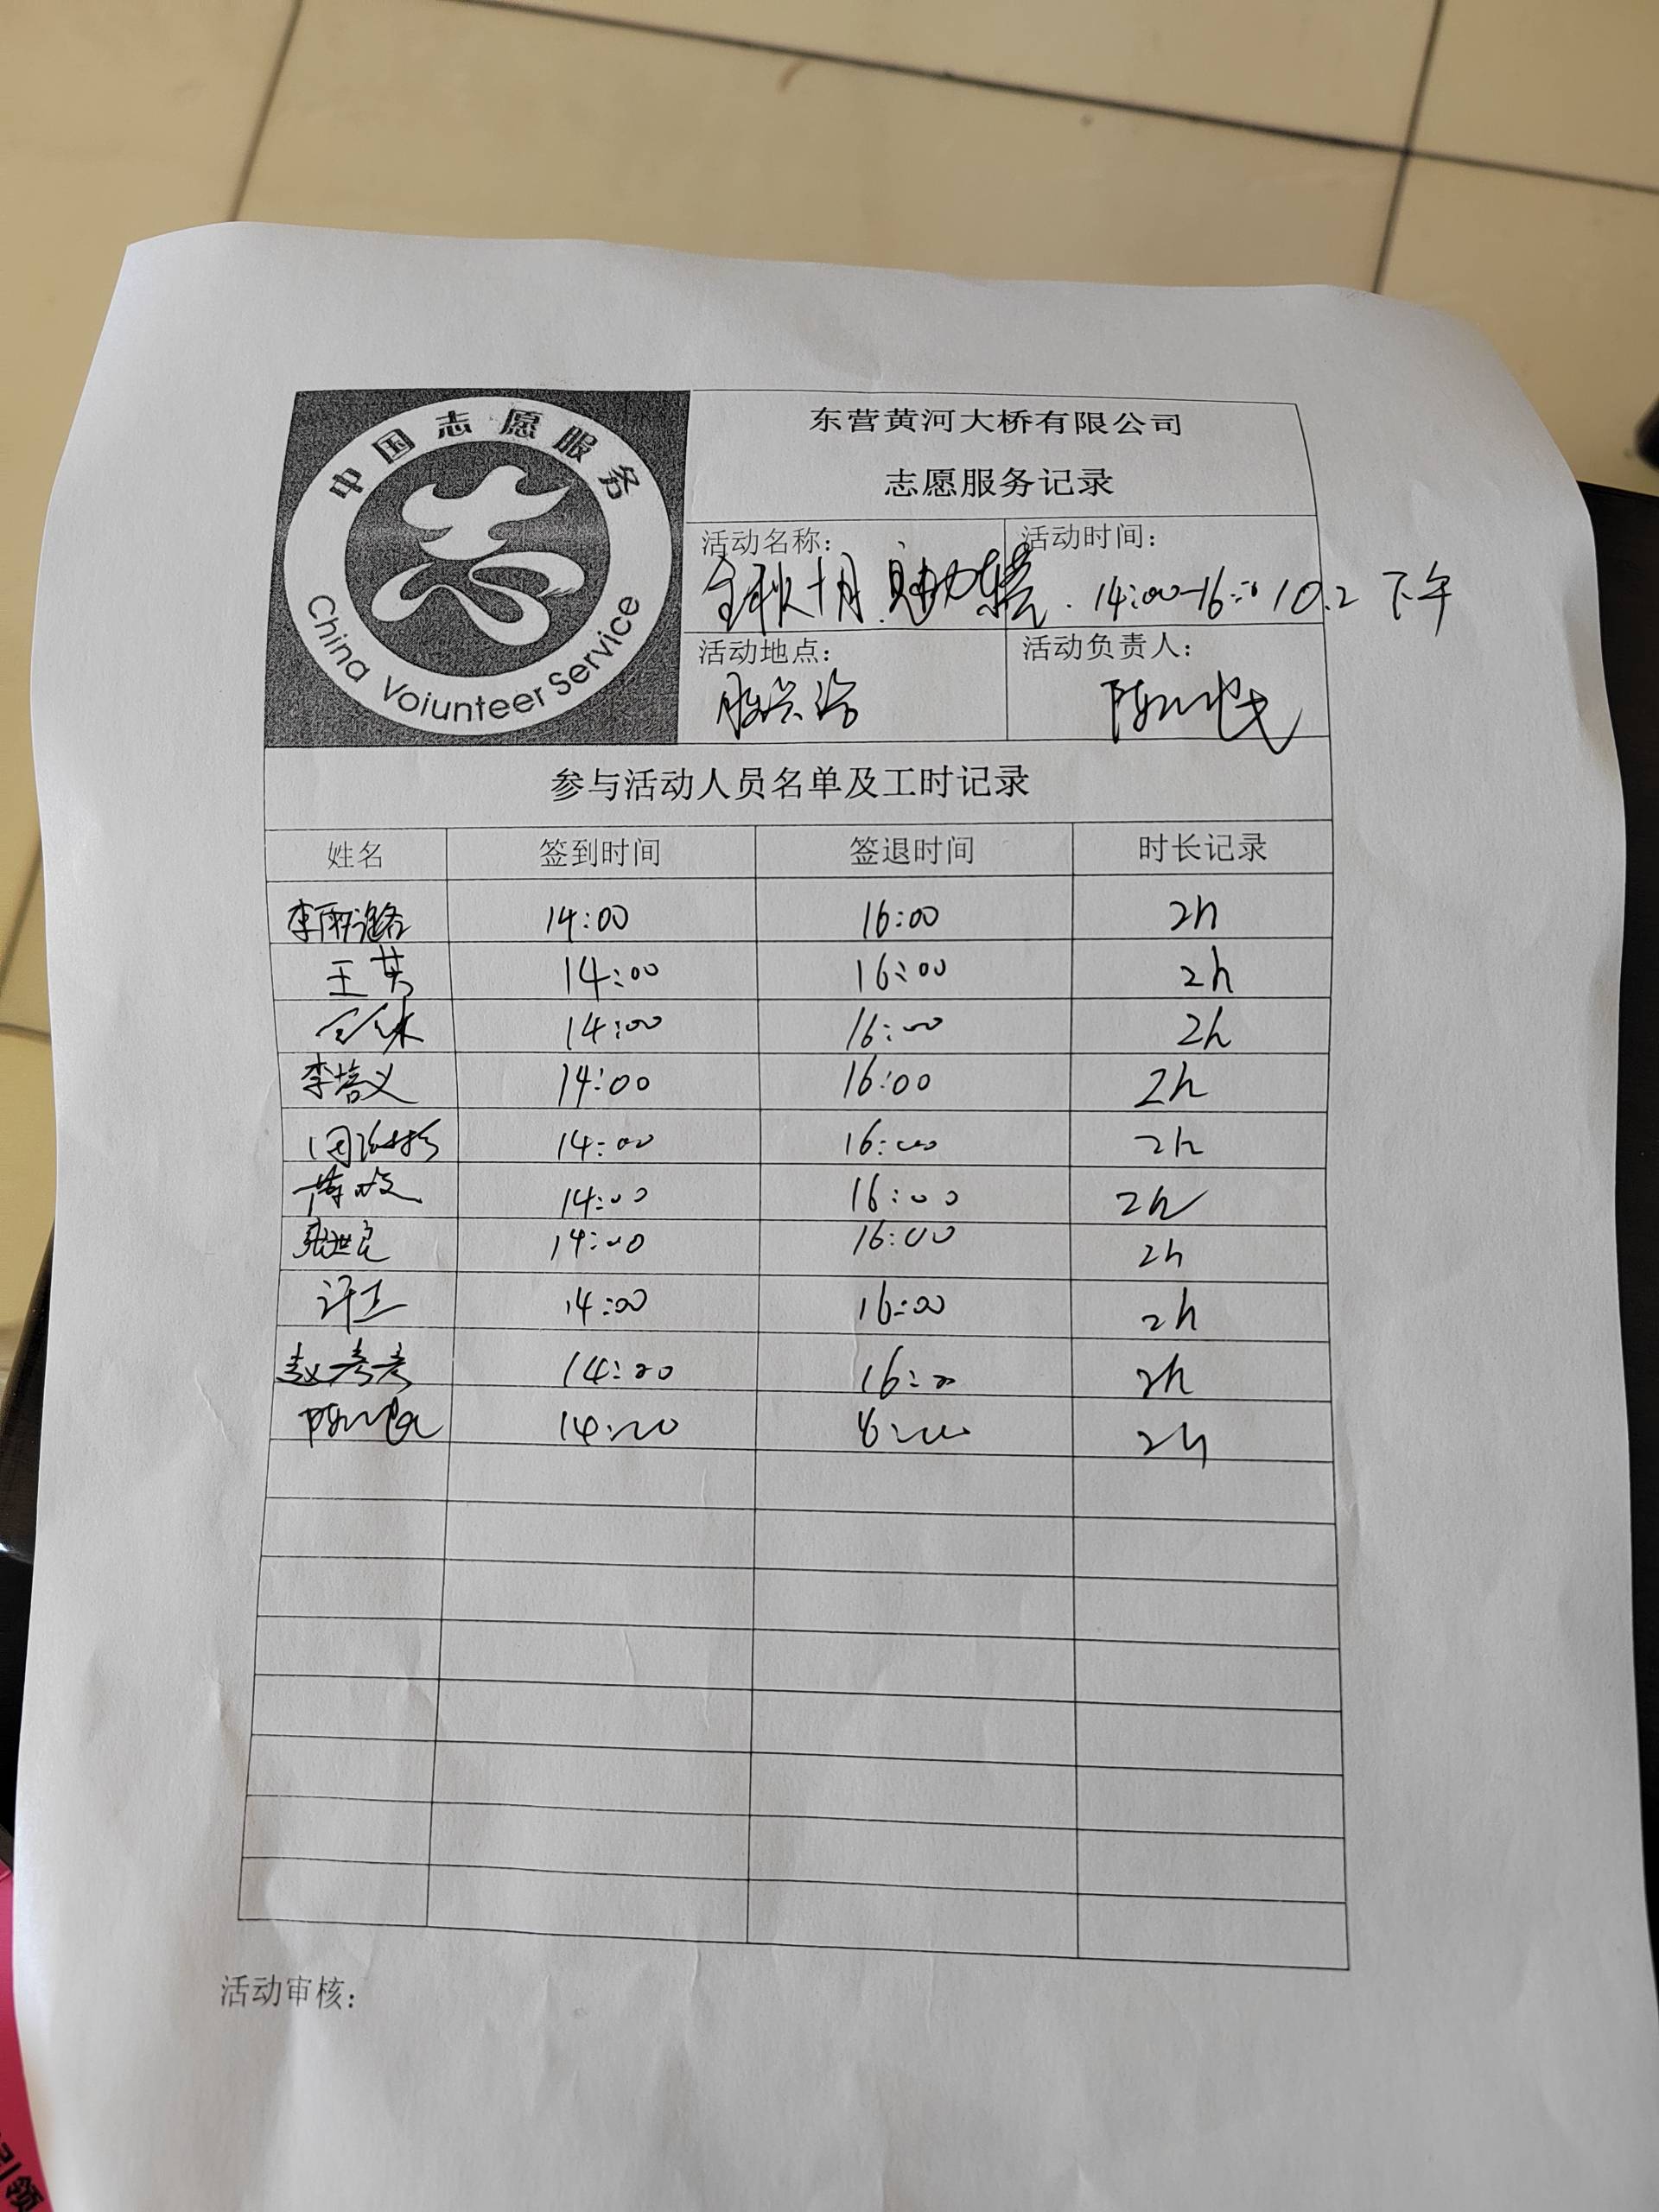 中国志愿服务
China Voiunteer Service
东营黄河大桥有限公司
志愿服务记录
活动名称:
活动时间:
金秋十月 14:00-16:00 10.2 下午
活动地点:
活动负责人:
参与活动人员名单及工时记录
姓名 签到时间 签退时间 时长记录
李雨璐 14:00 16:00 2h
王英 14:00 16:00 2h
14:00 16:00 2h
李培义 14:00 16:00 2h
14:00 16:00 2h
14:00 16:00 2h
张世良 14:00 16:00 2h
14:00 16:00 2h
赵 14:00 16:00 2h
14:00 16:00 2h
活动审核:
引领